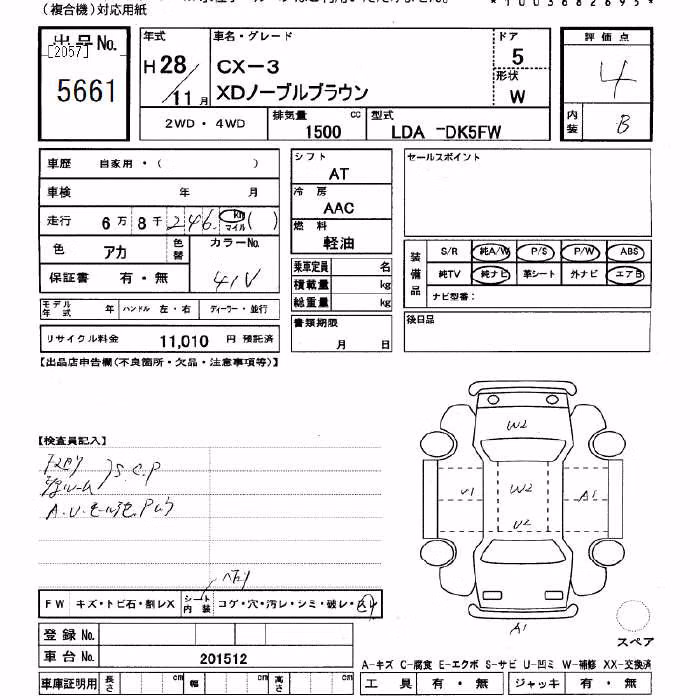 (複合機)対応用紙
出品No.
[2057]
5661
年式
H28/11月
車名・グレード
CX-3
XDノーブルブラウン
ドア
5
形状
W
2WD・4WD
排気量 cc
1500
型式
LDA -DK5FW
評価点
4
内装
B
車歴 自家用・( )
車検 年 月
走行 6万8千246 km マイル ( )
色 アカ 色替 カラーNo.
41V
保証書 有・無
モデル年式 年 ハンドル 左・右 ディーラー・並行
リサイクル料金 11,010 円 預託済
シフト
AT
冷房
AAC
燃料
軽油
乗車定員 名
積載量 kg
総重量 kg
書類期限
月 日
セールスポイント
装備品
S/R 純A/W P/S P/W ABS
純TV 純ナビ 革シート 外ナビ エアB
ナビ型番:
後日品
【出品店申告欄(不良箇所・欠品・注意事項等)】
【検査員記入】
S.C.P
W2
V1 W2 A1
U2
A1
FW キズ・トビ石・割レX シート内装 コゲ・穴・汚レ・シミ・破レ・スレ
登録No.
車台No. 201512
車庫証明用 長さ cm 幅 cm 高さ cm
スペア
A-キズ C-腐食 E-エクボ S-サビ U-凹ミ W-補修 XX-交換済
工具 有・無 ジャッキ 有・無